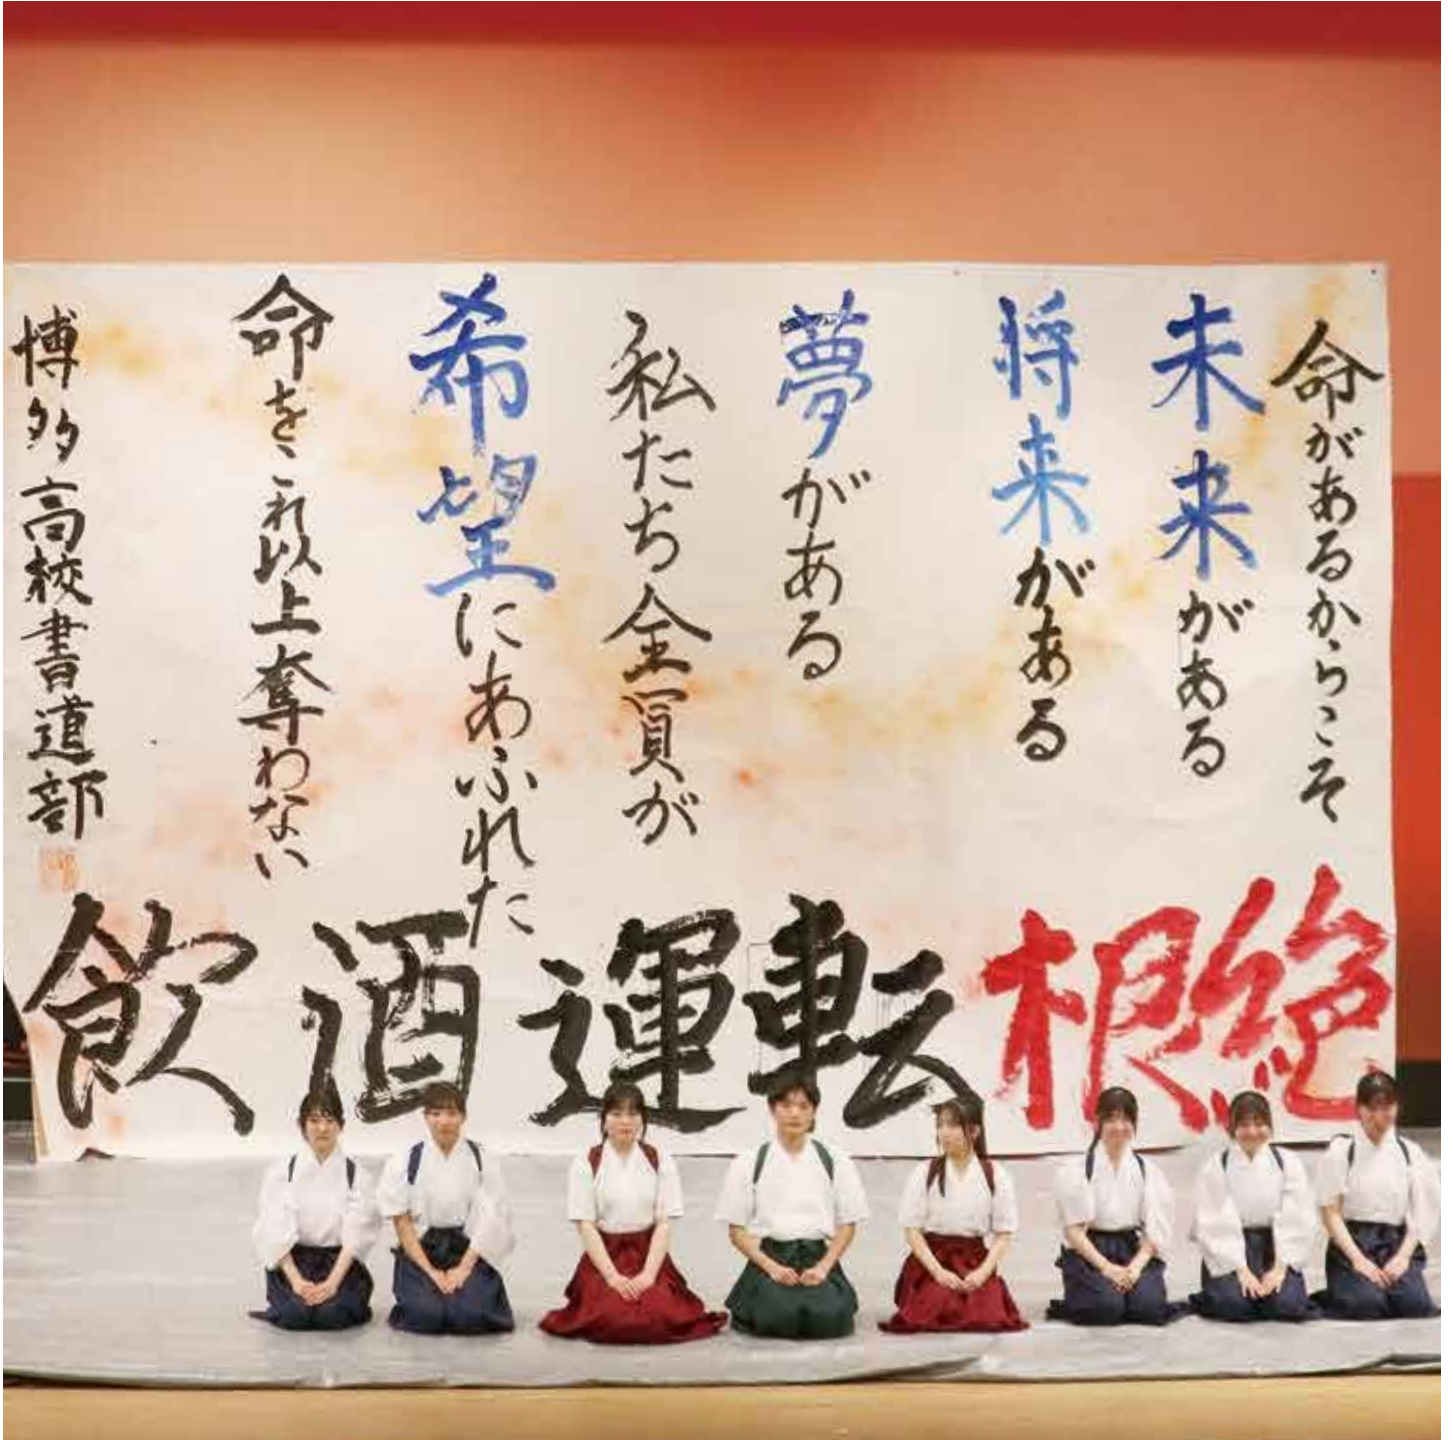 命があるからこそ
未来がある
将来がある
夢がある
私たち全員が
希望にあふれた
命をこれ以上奪わない
博多高校書道部
飲酒運転根絶